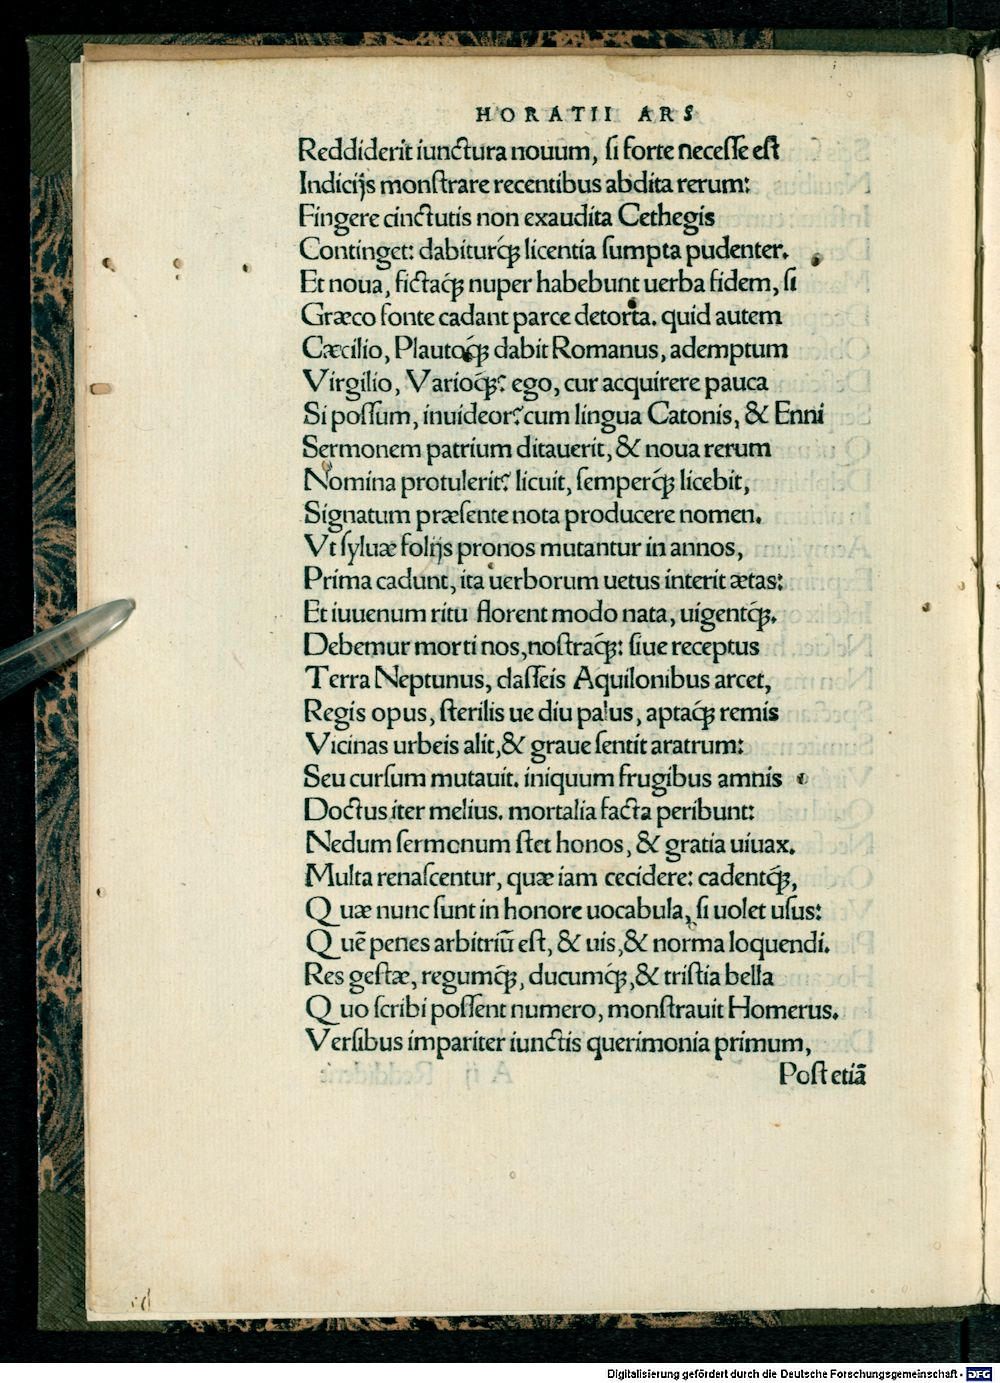 HORATII ARS
Reddiderit iunctura nouum, ſi forte neceſſe eſt
Indicijs monſtrare recentibus abdita rerum:
Fingere cinctutis non exaudita Cethegis
Continget: dabiturq́; licentia ſumpta pudenter.
Et noua, fictaq́; nuper habebunt uerba fidem, ſi
Græco fonte cadant parce detorta. quid autem
Cæcilio, Plautoq́; dabit Romanus, ademptum
Virgilio, Varioq́;? ego, cur acquirere pauca
Si poſſum, inuideor? cum lingua Catonis, & Enni
Sermonem patrium ditauerit, & noua rerum
Nomina protulerit? licuit, ſemperq́; licebit,
Signatum præſente nota producere nomen.
Vt ſyluæ folijs pronos mutantur in annos,
Prima cadunt, ita uerborum uetus interit ætas:
Et iuuenum ritu florent modo nata, uigentq́;.
Debemur morti nos, noſtraq́;: ſiue receptus
Terra Neptunus, claſſeis Aquilonibus arcet,
Regis opus, ſterilis ue diu palus, aptaq́; remis
Vicinas urbeis alit, & graue ſentit aratrum:
Seu curſum mutauit. iniquum frugibus amnis
Doctus iter melius. mortalia facta peribunt:
Nedum ſermonum ſtet honos, & gratia uiuax.
Multa renaſcentur, quæ iam cecidere: cadentq́;,
Quæ nunc ſunt in honore uocabula, ſi uolet uſus:
Quē penes arbitriū eſt, & uis, & norma loquendi.
Res geſtæ, regumq́;, ducumq́;, & triſtia bella
Quo ſcribi poſſent numero, monſtrauit Homerus.
Verſibus impariter iunctis querimonia primum,
Poſt etiā
Digitalisierung gefördert durch die Deutsche Forschungsgemeinschaft - DFG